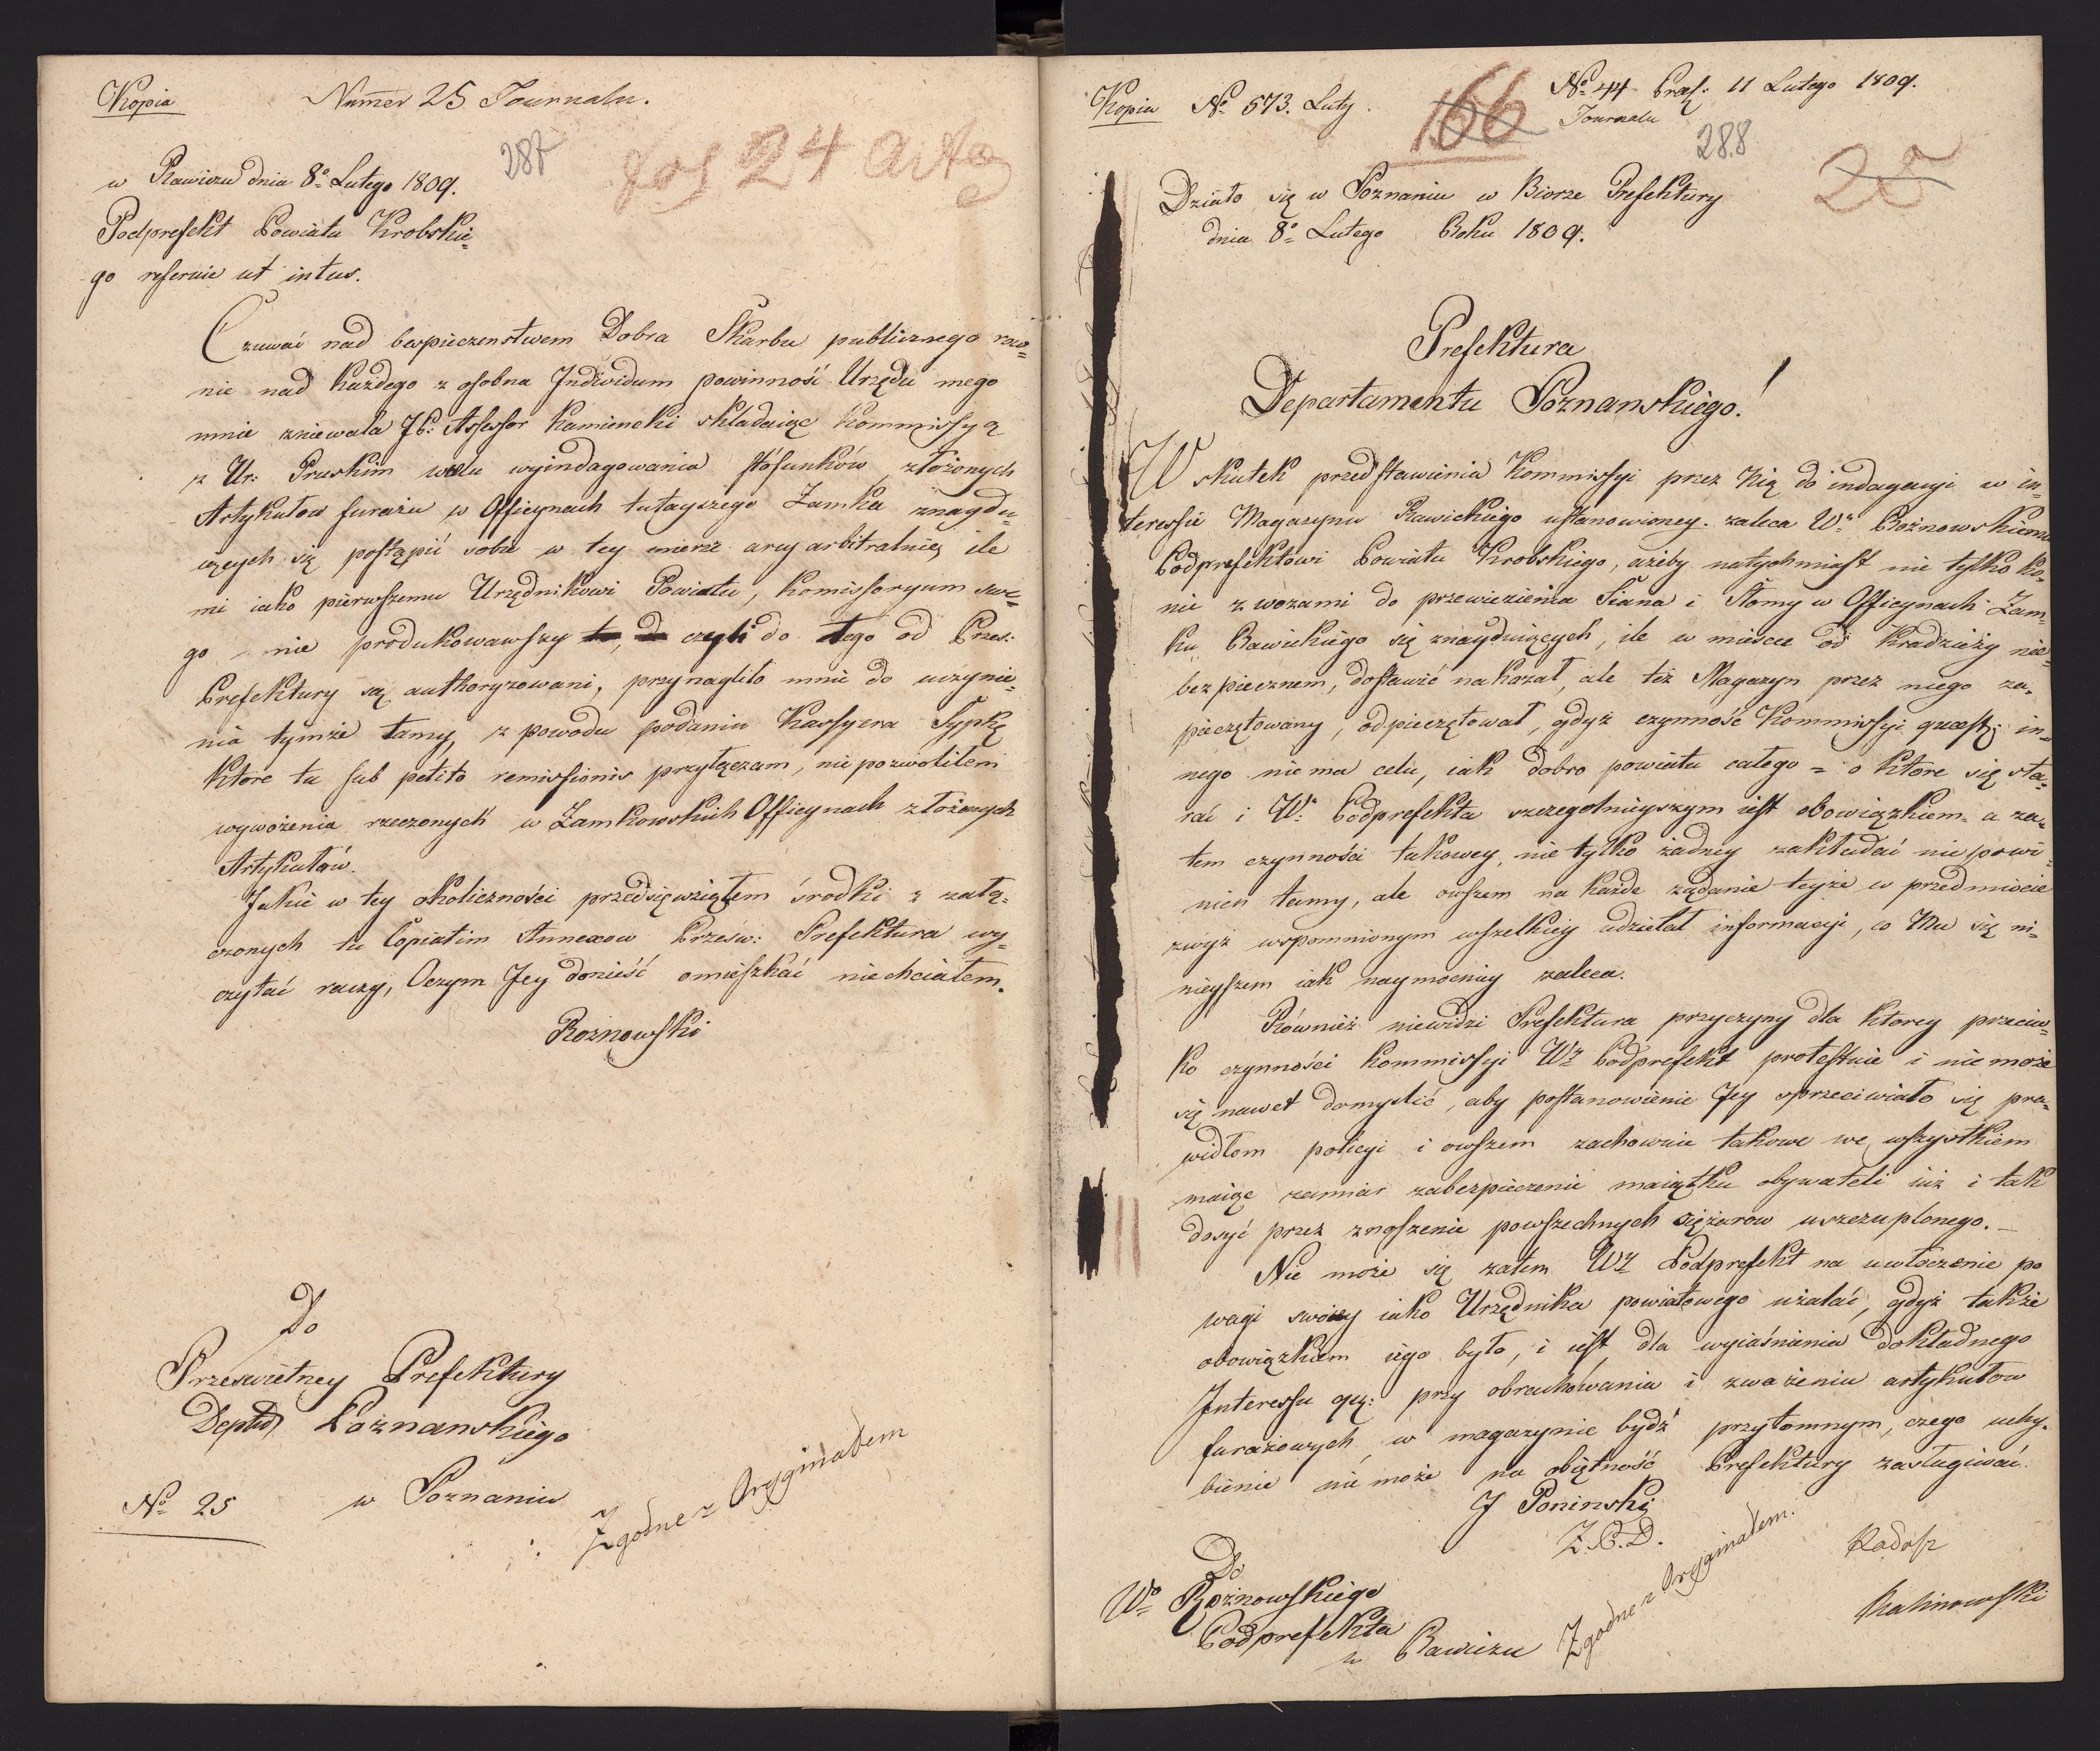 Kopia Nuṁer 25 Journalu.
287
fol 24 Akta
w Rawiczu dnia 8º Lutego 1809.
Podprefekt Powiatu Krobskie=
go referuie ut intus.
Czuwać nad bespieczenstwem Dobra Skarbu publicznego rów=
nie nad każdego z osobna Individum powinność Urzędu mego
mnie zniewala JP: Assessor Kamienski składaiąc Kommissyą
z Ur: Pruskim wcelu wyindagowania stósunków złożonych
Artykułow furażu w Officynach tutayszego Zamku znaydu=
iących się postąpić sobie w tey mierze arcy arbitralnie, ile
mi iako pierwszemu Urzędnikowi Powiatu, Komissoryum swe=
go nie produkowawszy czyli do tego od Przes:
Prefektury są authoryzowani, przynagliło mnie do uczynie=
nia tymże tamy, z powodu podania Kassyera Sypkę
ktore tu sub petito remissionis przyłączam, nie pozwoliłem
wywożenia rzeczonych w Zamkowskich Officynach złożonych
Artykułów.
Jakie w tey okoliczności przedsięwziąłem środki z załą=
czonych tu Copiatim Annexow Prześw: Prefektura wy=
czytać raczy, Oczym Jey donieść omieszkać niechciałem.
Rożnowski
Do
Przeswietney Prefektury
Deptu Poznanskiego
w Poznaniu
Nº 25
Zgodne z Oryginałem
Kopia Nº 573. Luty.
166
Nº 44 Præs: 11 Lutego 1809.
Journalu
288
25
Działo się w Poznaniu w Biorze Prefektury
dnia 8º Lutego Roku 1809.
Prefektura
Departamentu Poznanskiego!
W skutek przedstawienia Kommissyi przez Nią do indagacyi w in=
teressie Magazynu Rawickiego ustanowioney. zaleca Wº Rożnowskiemu
Podprefektowi Powiatu Krobskiego, ażeby natychmiast nie tylko ko=
nie z wozami do przewiezienia Siana i Słomy w Officynach Zam=
ku Rawickiego się znayduiących, ile w miescu od kradzieży nie=
bezpiecznem, dostawić nakazał, ale też Magazyn przez niego za=
pieczętowany, odpieczętował, gdyż czynność Kommissyi quæst: in=
nego nie ma celu, iak dobro powiatu całego = o ktore się sta=
rać i Wº Podprefekta szczegolnieyszym iest obowiązkiem = a za=
tem czynności takowey, nie tylko żadney zakładać nie powi=
nien tamy, ale owszem na każde żądanie teyże w przedmiocie
zwyż wspomnionym wszelkiey udzielał informacyi, co Mu się ni=
nieyszem iak naymocniey zaleca.
Również niewidzi Prefektura przyczyny dla ktorey przeciw=
ko czynności Kommissyi Wy Podprefekt protestuie i nie może
się nawet domyslić, aby postanowienie Jey sprzeciwiało się pra=
widłom policyi i owszem zachowuie takowe we wszystkiem
maiąc zamiar zabezpieczenie maiątku obywateli iuż i tak
dosyć przez znoszenie powszechnych ciężarow uszczuplonego.
Nie może się zatem Wy Podprefekt na uwłoczenie po
wagi swoiey iako Urzędnika powiatowego użalać, gdyż także
obowiązkiem iego było, i iest, dla wyiaśnienia dokładnego
Interessu qu: przy obrachowaniu i zważeniu artykułow
furażowych w magazynie bydź przytomnym, czego uchy=
bienie nie może na obiętność Prefektury zasługiwać.
J Poninski
Z.P.D.
Do
Wº Rożnowskiego
Podprefekta
w Rawiczu
Zgodne z Oryginałem.
Radosz
Kalinowski